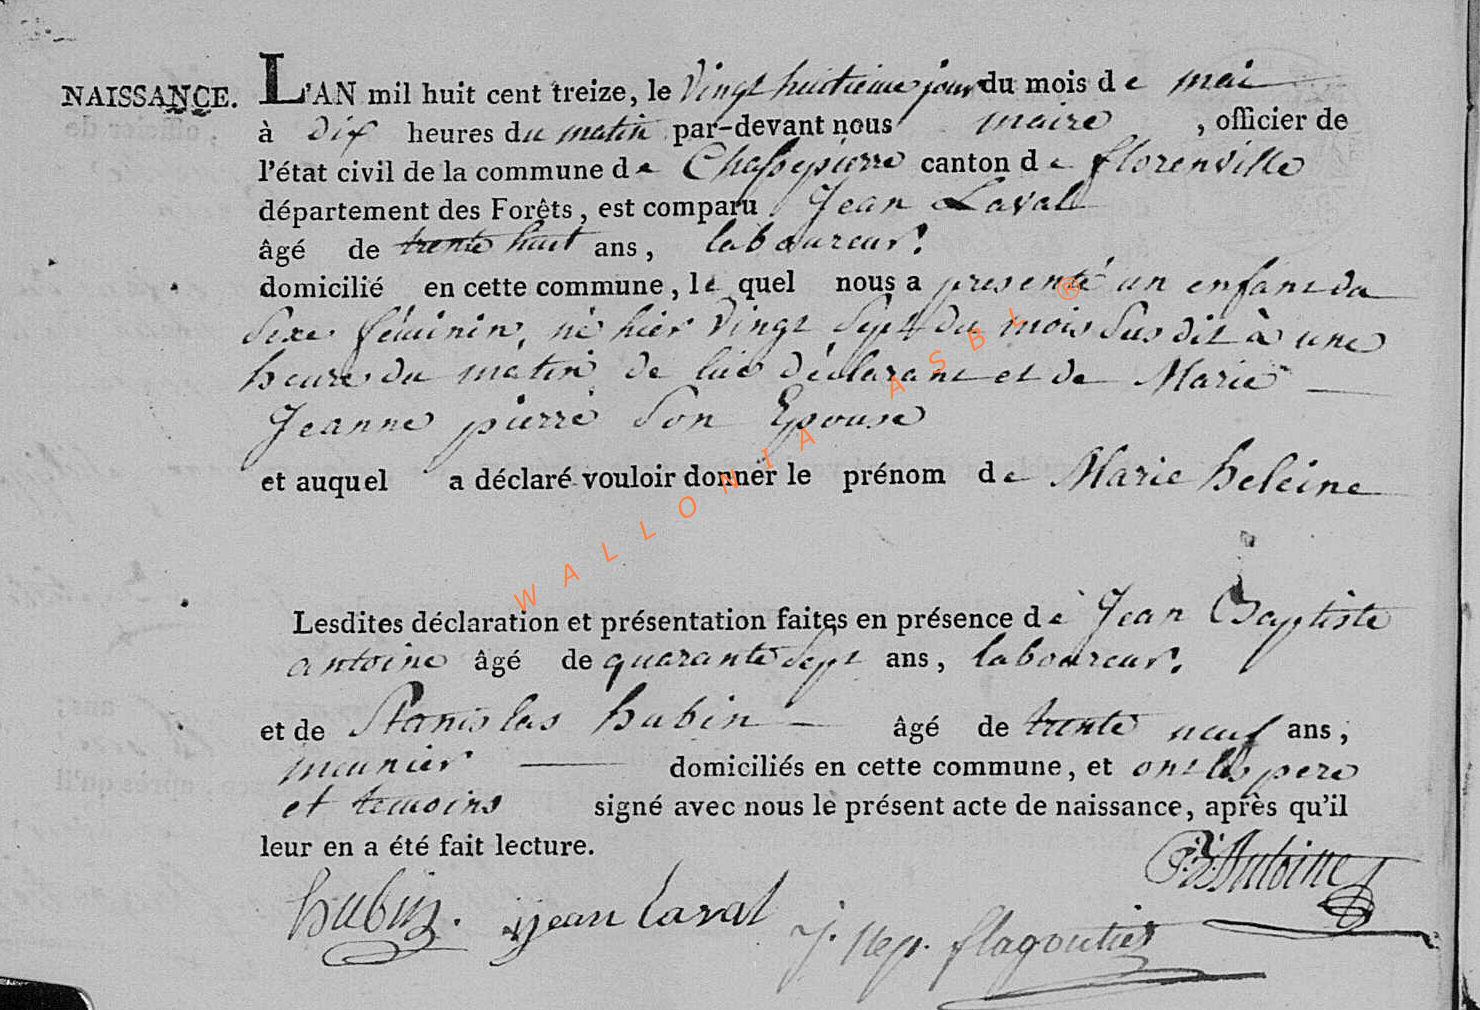 NAISSANCE. L'AN mil huit cent treize, le Vingt huitieme jour du mois de mai
à dix heures du matin par-devant nous maire , officier de
l'état civil de la commune de Chassepierre canton de florenville
département des Forêts, est comparu Jean Laval
âgé de trente huit ans, laboureur.
domicilié en cette commune, le quel nous a presenté un enfant du
Sexe féminin, né hier Vingt Sept du mois Susdit à une
heure du matin de lui déclarant et de Marie
Jeanne pierre Son Epouse
et auquel a déclaré vouloir donner le prénom de Marie heleine
Lesdites déclaration et présentation faites en présence de Jean Baptiste
antoine âgé de quarante Sept ans, laboureur.
et de Stanislas hubin âgé de trente neuf ans,
meunier domiciliés en cette commune, et ont les pere
et temoins signé avec nous le présent acte de naissance, après qu'il
leur en a été fait lecture.
hubin. jean Laval J. Nep. flagontier
WALLONIA ASBL ®